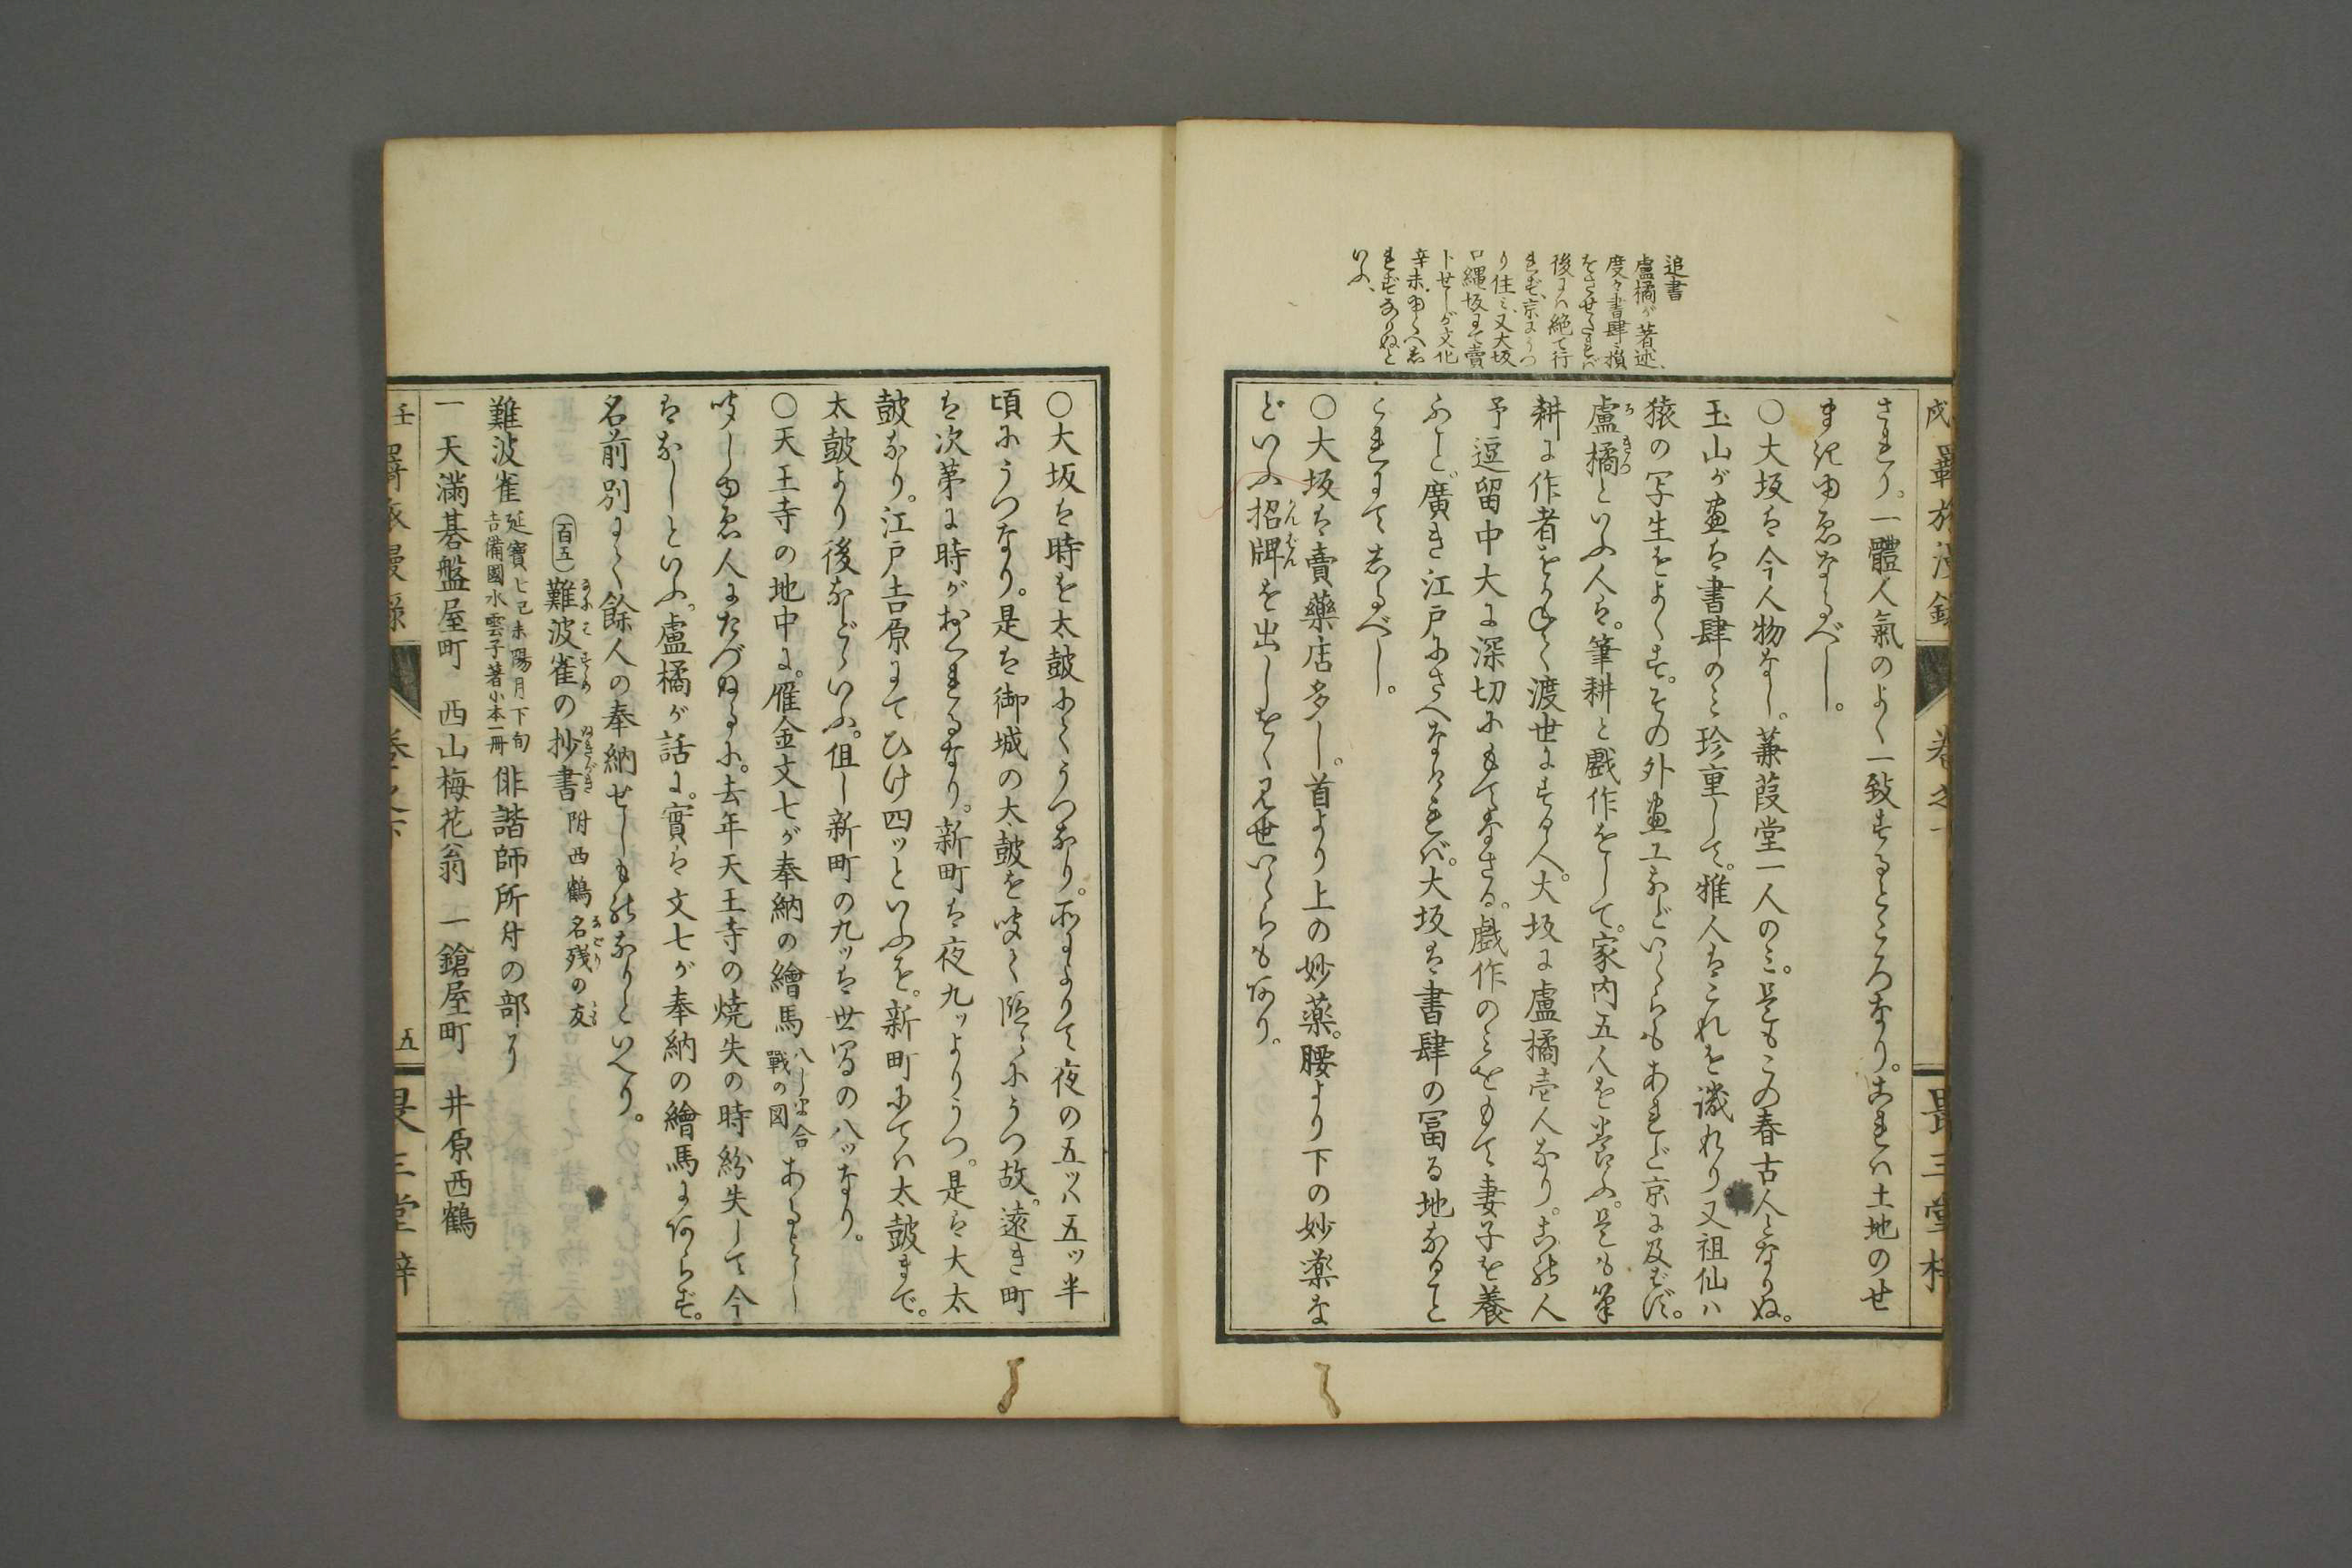 追書
盧橘が著述、
度々書肆損
をさせたれバ
後にハ絶て行
れず、京にうつ
り住ミ、又大坂
口縄坂にて賣
卜せしが文化
辛未
れずなりぬと
いふ、
戌羇旅漫録
巻之下
されり。一體人氣のよく一致するところなり。これハ土地のせ
まきゆゑなるべし。
〇大坂は今人物なし。蒹葭堂一人のミ。是もこの春古人となりぬ。
玉山が畫は書肆のミ珍重して。雅人はこれを譏れり又祖仙ハ
猿の写生をよくす。その外畫工などいくらもあれど京に及ばず。
盧橘といふ人は。筆耕と戲作をして。家内五人を養ふ。是も筆
耕に作者をかねて渡世にする人。大坂に盧橘壱人なり。この人
予逗留中大に深切にもてなさる。戯作のミをもて妻子を養
ふこと廣き江戸にさへなければ。大坂は書肆の冨る地なること
これにてしるべし。
〇大坂は賣藥店多し。首より上の妙薬。腰より下の妙薬な
どいふ招牌を出しをく見世いくらもあり。
〇大坂は時を太鼓にてうつなり。所によりて夜の五ッハ五ッ半
頃にうつなり。是は御城の太鼓を聞て段々にうつ故。遠き町
は次第に時がおくれるなり。新町は夜九ッよりうつ。是は大太
鼓なり。江戸吉原にてひけ四ッといふを。新町にてハ太鼓まで。
太鼓より後などゝいふ。但し新町の九ッは世間の八ッなり。
〇天王寺の地中に。雁金文七が奉納の繪馬八しま合戰の図あるよし
聞しゆゑ人にたづぬるに。去年天王寺の焼失の時紛失して今
はなしといふ。盧橘が話に。實は文七が奉納の繪馬にあらず。
名前別にて餘人の奉納せしものなりといへり。
百五 難波雀の抄書 附西鶴名残の友
難波雀 延寶七己未陽月下旬 吉備國水雲子著小本一冊 俳諧師所付の部より
一 天滿碁盤屋町 西山梅花翁 一 鎗屋町 井原西鶴
五